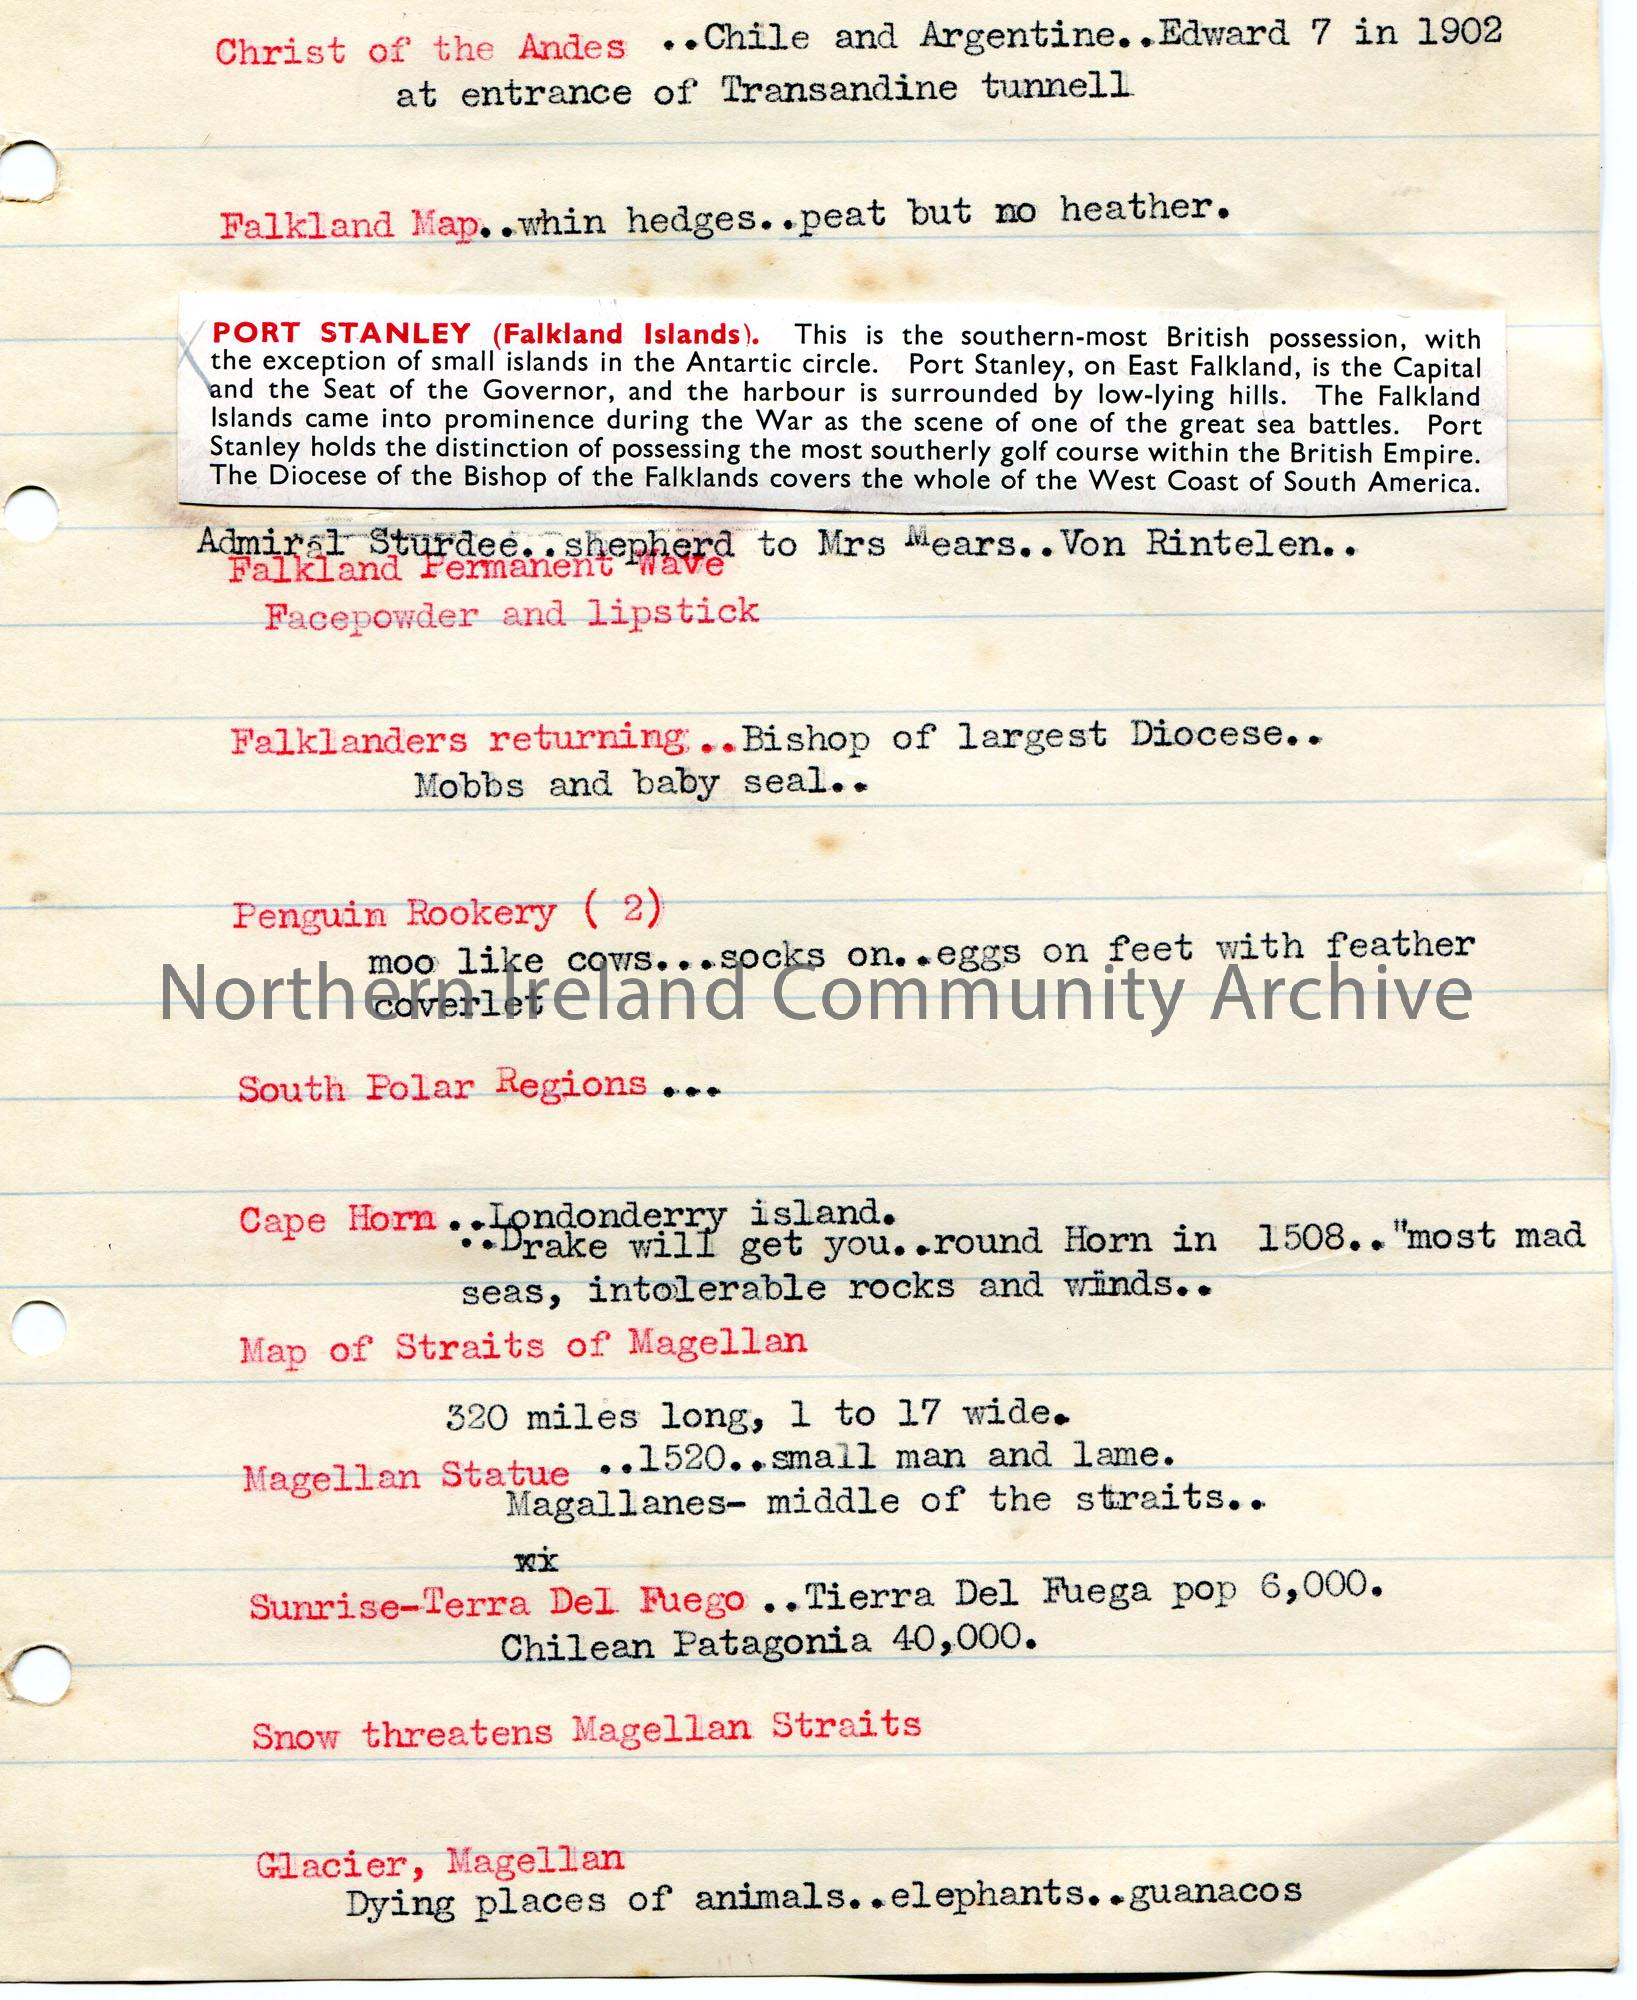 Christ of the Andes ..Chile and Argentine..Edward 7 in 1902
at entrance of Transandine tunnell
Falkland Map..whin hedges..peat but no heather.
PORT STANLEY (Falkland Islands). This is the southern-most British possession, with
the exception of small islands in the Antartic circle. Port Stanley, on East Falkland, is the Capital
and the Seat of the Governor, and the harbour is surrounded by low-lying hills. The Falkland
Islands came into prominence during the War as the scene of one of the great sea battles. Port
Stanley holds the distinction of possessing the most southerly golf course within the British Empire.
The Diocese of the Bishop of the Falklands covers the whole of the West Coast of South America.
Admiral Sturdee..shepherd to Mrs Mears..Von Rintelen..
Falkland Permanent Wave
Facepowder and lipstick
Falklanders returning..Bishop of largest Diocese..
Mobbs and baby seal..
Penguin Rookery ( 2)
moo like cows...socks on..eggs on feet with feather
coverlet
Northern Ireland Community Archive
South Polar Regions...
Cape Horn..Londonderry island.
..Drake will get you..round Horn in 1508.."most mad
seas, intolerable rocks and winds..
Map of Straits of Magellan
320 miles long, 1 to 17 wide.
Magellan Statue ..1520..small man and lame.
Magallanes- middle of the straits..
Sunrise-Terra Del Fuego ..Tierra Del Fuega pop 6,000.
Chilean Patagonia 40,000.
Snow threatens Magellan Straits
Glacier, Magellan
Dying places of animals..elephants..guanacos